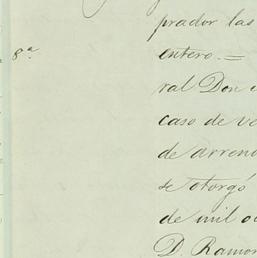 prador las
8ª. entero. =
ral Don
caso de ve
de arrend
se otorgó
de mil o
D. Ramon